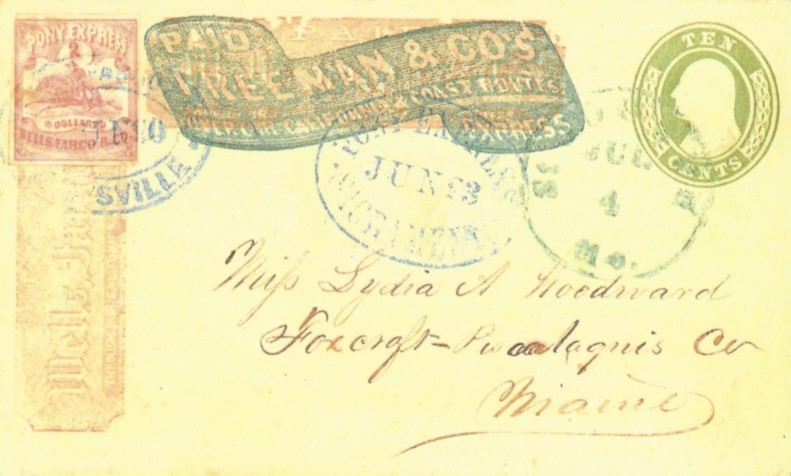 PONY EXPRESS
2
DOLLARS
WELLS FARGO & CO
PAID
FREEMAN & CO'S
CALIFORNIA & COAST ROUTES
EXPRESS
TEN
CENTS
SVILLE
PONY EXPRESS
JUN 23
SACRAMENTO
4
Mo.
Wells, Fa
Miss Lydia A Woodward
Foxcroft - Piscataquis Co
Maine